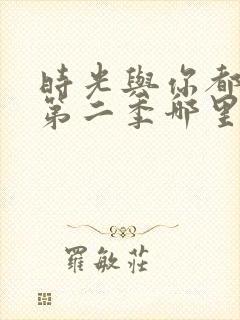 時光與你都
第二季哪里
羅敏莊